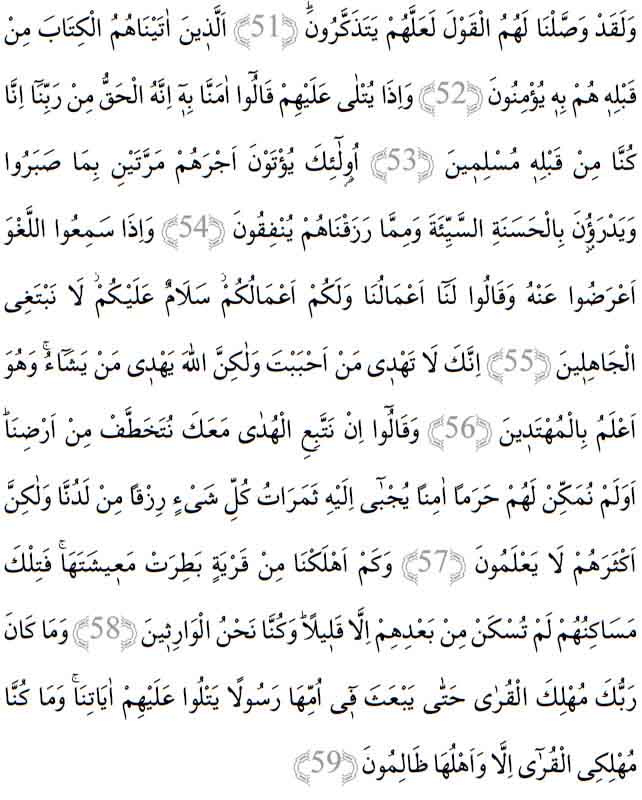 وَلَقَدْ وَصَّلْنَا لَهُمُ الْقَوْلَ لَعَلَّهُمْ يَتَذَكَّرُونَۜ ﴿51﴾ اَلَّذ۪ينَ اٰتَيْنَاهُمُ الْكِتَابَ مِنْ
قَبْلِه۪ هُمْ بِه۪ يُؤْمِنُونَ ﴿52﴾ وَاِذَا يُتْلٰى عَلَيْهِمْ قَالُٓوا اٰمَنَّا بِه۪ٓ اِنَّهُ الْحَقُّ مِنْ رَبِّنَٓا اِنَّا
كُنَّا مِنْ قَبْلِه۪ مُسْلِم۪ينَ ﴿53﴾ اُو۬لٰٓئِكَ يُؤْتَوْنَ اَجْرَهُمْ مَرَّتَيْنِ بِمَا صَبَرُوا
وَيَدْرَؤُ۫نَ بِالْحَسَنَةِ السَّيِّئَةَ وَمِمَّا رَزَقْنَاهُمْ يُنْفِقُونَ ﴿54﴾ وَاِذَا سَمِعُوا اللَّغْوَ
اَعْرَضُوا عَنْهُ وَقَالُوا لَنَٓا اَعْمَالُنَا وَلَكُمْ اَعْمَالُكُمْۘ سَلَامٌ عَلَيْكُمْۘ لَا نَبْتَغِي
الْجَاهِل۪ينَ ﴿55﴾ اِنَّكَ لَا تَهْد۪ي مَنْ اَحْبَبْتَ وَلٰكِنَّ اللّٰهَ يَهْد۪ي مَنْ يَشَٓاءُۚ وَهُوَ
اَعْلَمُ بِالْمُهْتَد۪ينَ ﴿56﴾ وَقَالُٓوا اِنْ نَتَّبِعِ الْهُدٰى مَعَكَ نُتَخَطَّفْ مِنْ اَرْضِنَاۜ
اَوَلَمْ نُمَكِّنْ لَهُمْ حَرَماً اٰمِناً يُجْبٰٓى اِلَيْهِ ثَمَرَاتُ كُلِّ شَيْءٍ رِزْقاً مِنْ لَدُنَّا وَلٰكِنَّ
اَكْثَرَهُمْ لَا يَعْلَمُونَ ﴿57﴾ وَكَمْ اَهْلَكْنَا مِنْ قَرْيَةٍ بَطِرَتْ مَع۪يشَتَهَاۚ فَتِلْكَ
مَسَاكِنُهُمْ لَمْ تُسْكَنْ مِنْ بَعْدِهِمْ اِلَّا قَل۪يلاًۜ وَكُنَّا نَحْنُ الْوَارِث۪ينَ ﴿58﴾ وَمَا كَانَ
رَبُّكَ مُهْلِكَ الْقُرٰى حَتّٰى يَبْعَثَ ف۪ٓي اُمِّهَا رَسُولًا يَتْلُوا عَلَيْهِمْ اٰيَاتِنَاۚ وَمَا كُنَّا
مُهْلِكِي الْقُرٰٓى اِلَّا وَاَهْلُهَا ظَالِمُونَ ﴿59﴾